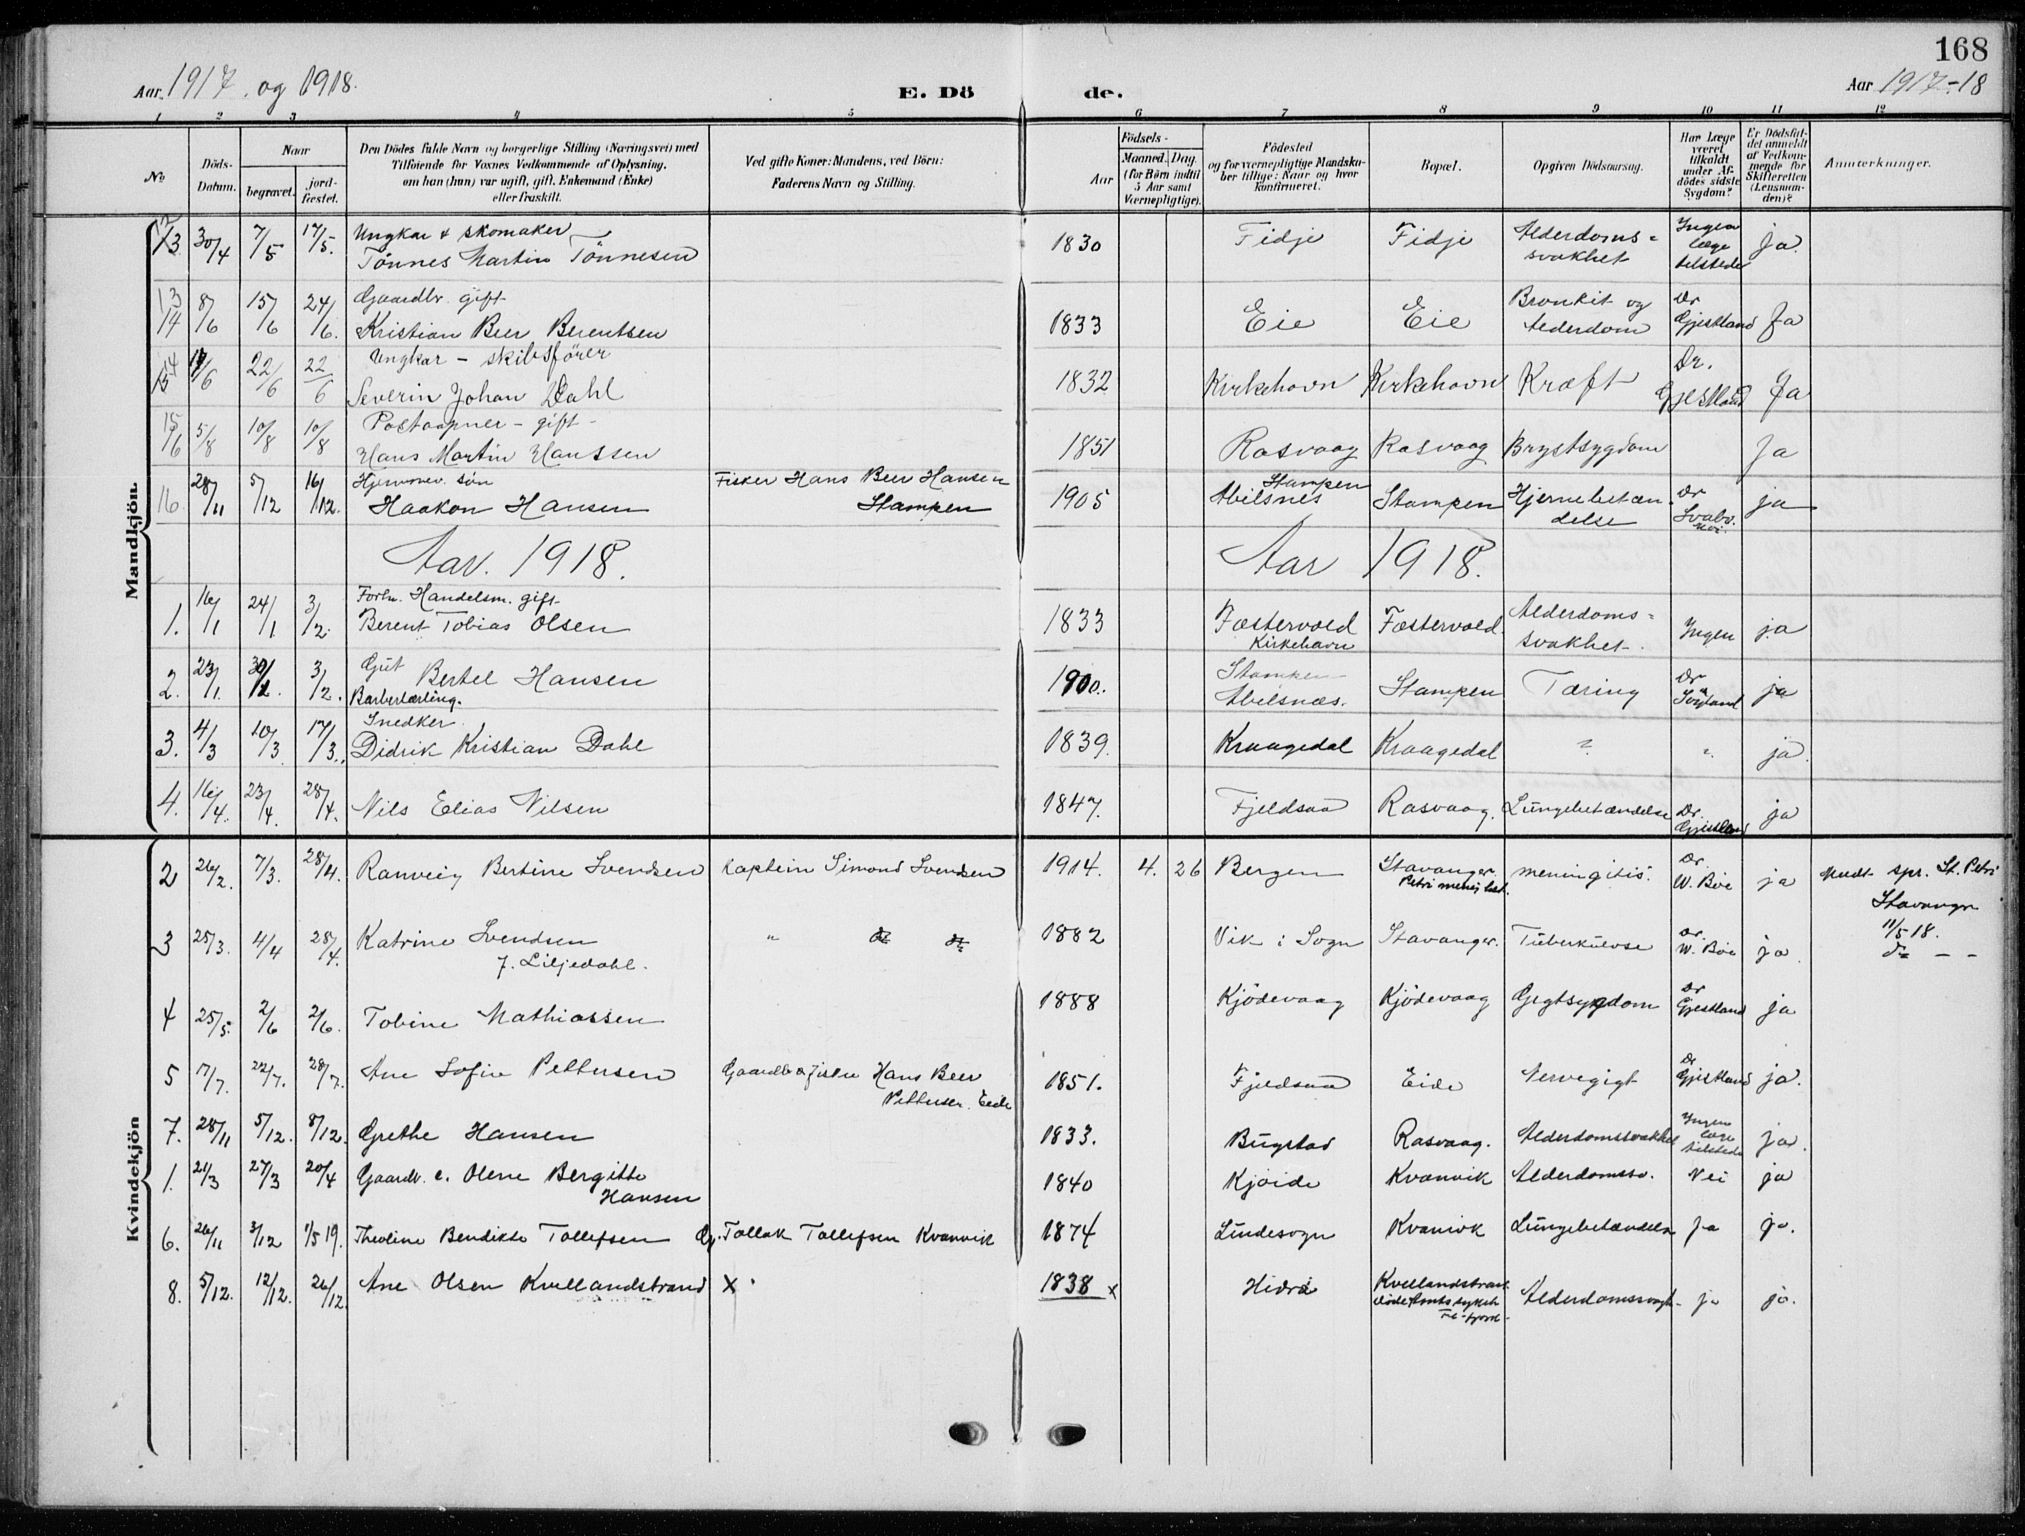 168
Aar 1917 og 1918.
E. Dö de.
Aar 1917-18
1 2 3 4 5 6 7 8 9 10 11 12
No
Döds-Datum.
Naar
begravet.
jord-fæstet.
Den Dödes fulde Navn og borgerlige Stilling (Næringsvei) med
Tilföiende for Voxnes Vedkommende af Oplysning,
om han (hun) var ugift, gift, Enkemand (Enke)
eller fraskilt.
Ved gifte Koner: Mandens, ved Börn:
Faderens Navn og Stilling.
Födsels-
Aar
Maaned. Dag.
(for Börn indtil
5 Aar samt
Værnepligtige).
Födested
og for værnepligtige Mandska-
ber tillige: Naar og hvor
konfirmeret.
Bopæl.
Opgiven Dödsaarsag.
Har Læge
været
tilkaldt
under Af-
dödes sidste
Sygdom?
Er Dödsfal-
det anmeldt
af Vedkom-
mende for
Skifteretten
(Lensman-
den)?
Anmærkninger.
Mandkjön.
12 13 30/4 7/5 17/5. Ungkar & skomaker
Tönnes Martin Tönnesen 1830 Fidje Fidje Alderdoms-
svakhet Ingen
læge
tilstede ja.
13 14 8/6 15/6 24/6. Gaardbr. gift
Kristian Beer Berentsen 1833 Eie Eie Bronkit og
Alderdom Dr
Gjestland Ja
14 15 22/6 22/6 Ungkar - skibsförer
Severin Johan Dahl 1832 Kirkehavn Kirkehavn Kræft Dr.
Gjestland Ja
15 16 5/8 10/8 10/8 Postaapner - gift -
Hans Martin Hanssen 1851 Rasvaag Rasvaag Brystsygdom Ja
16 28/11 5/12 16/12. Hjemmev. sön
Haakon Hansen Fisker Hans Beer Hansen
Stampen 1905 Stampen
Abilsnes Stampen Hjernebetæn-
delse Dr ja
Aar. 1918. Aar 1918.
1. 16/1 24/1 3/2. Forhv. Handelsm. gift
Berent Tobias Olsen 1833 Fæstervold
Kirkehavn Fæstervold. Alderdoms-
svakhet. Ingen ja
2. 23/1. 3/2. Gut Bertel Hansen
Barberlærling. 1900. Stampen
Abilsnæs. Stampen Tæring Dr ja
3. 4/3 10/3 17/3. Snedker
Didrik Kristian Dahl 1839. Kraagedal Kraagedal ? ? ja.
4. 16/4. 23/4. 28/4. Nils Elias Nilsen 1847. Fjeldsaa Rasvaag. Lungebetændelse Dr.
Gjestland ja
Kvindekjön
2 26/2. 7/3. 28/4. Ranveig Bertine Svendsen Kaptein Simond Svendsen 1914. 4. 26 Bergen Stavanger.
Petri menighed. meningitis. Dr.
W. Böe ja Medt spr. St. Petri
Stavanger
11/5 18.
3 25/3. 4/4 28/4. Katrine Svendsen
f. Liljedahl. " do do 1882 Vik i Sogn Stavanger. Tuberkulose Dr.
W. Böe ja. do - -
4 25/5. 2/6 2/6. Tobine Mathiassen 1888 Kjödevaag Kjödevaag Gigtsygdom Dr
Gjestland ja
5 17/7. 22/7. 28/7. Ane Sofie Pettersen Gaardbr & fisker Hans Beer
Pettersen. Eide 1851. Fjeldsaa Eide Nervegigt Dr
Gjestland ja.
7. 28/11 5/12. 8/12. Grethe Hansen 1833. Bugstad Rasvaag. Alderdomssvakhet Ingen
læge
tilstede ja.
1. 21/3 27/3 20/4 Gaardb. e. Olene Bergitte
Hansen 1840 Kjöide Kvanvik Alderdomssv. Nei ja
6. 26/11 3/12 1/5 19. Theoline Bendikte Tollefsen G. Tollak Tollefsen Kvanvik 1874 Lindesogn Kvanvik Lungebetændelse Ja ja.
8. 5/12. 12/12. 26/12. Ane Olsen Kvellandstrand X 1838 x Hidra Kvellandstrand
döde Amtssykeh
Fl-fjord- Alderdomssvagh- ja ja.